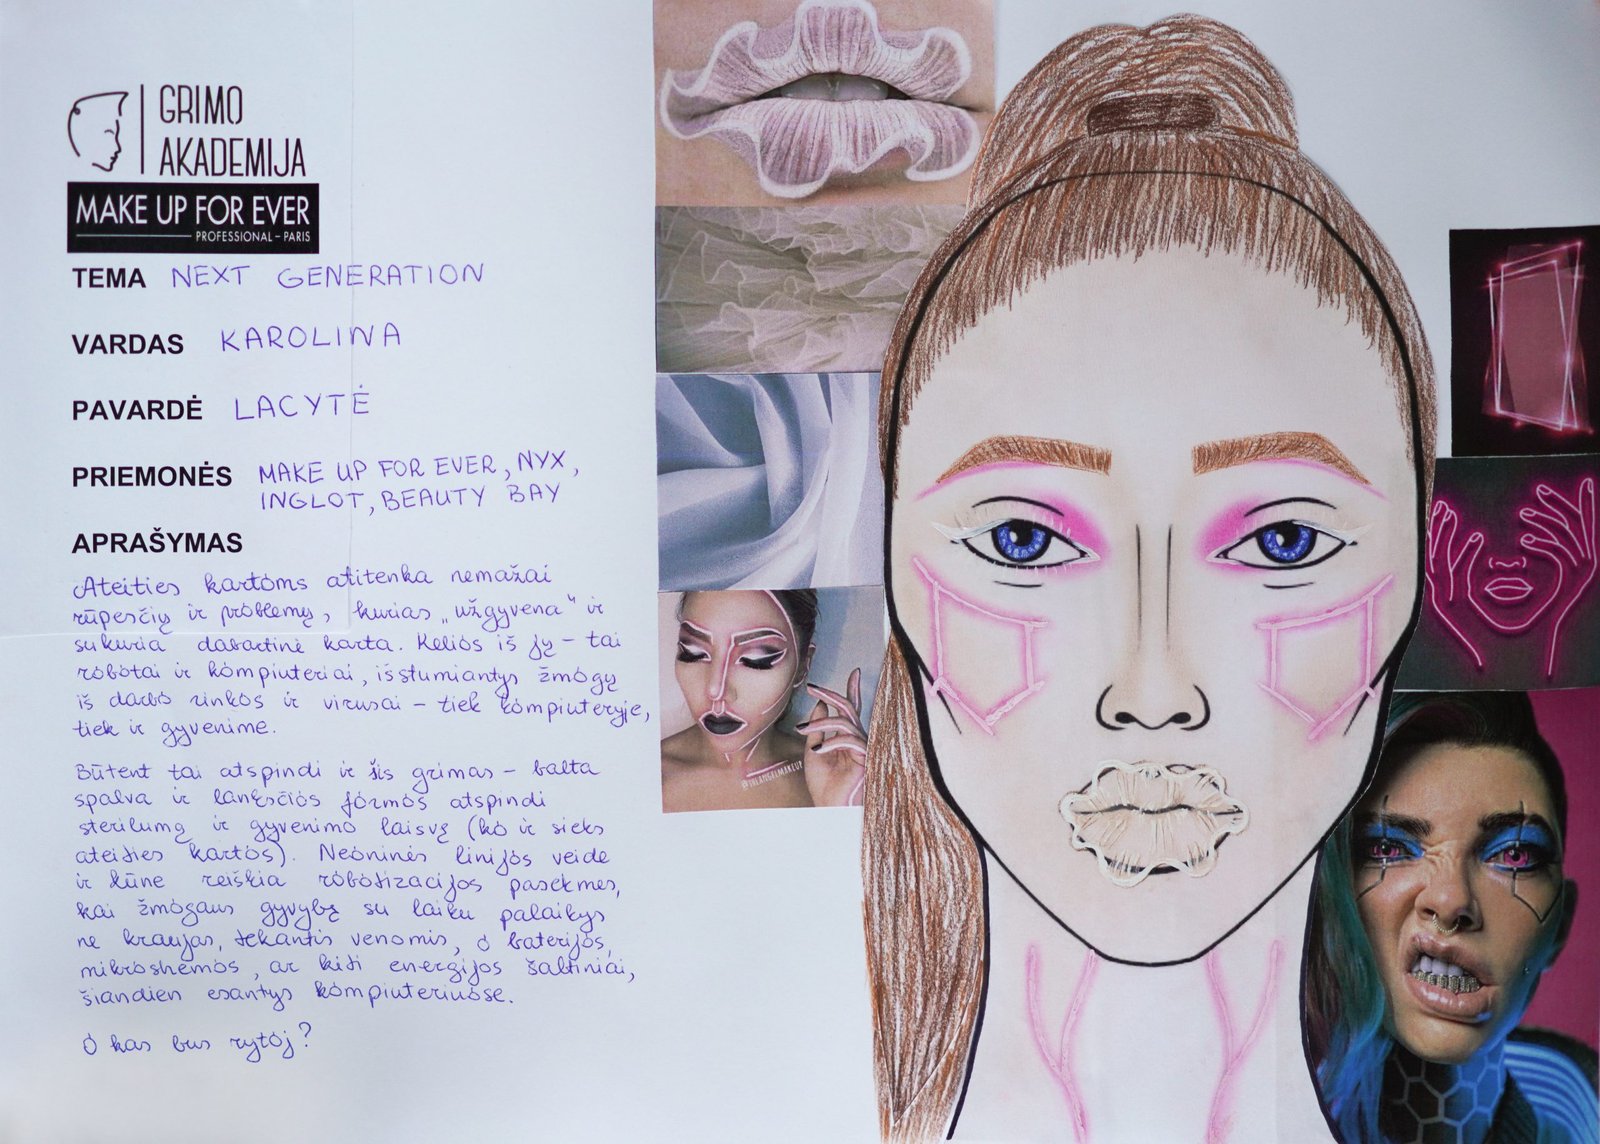 GRIMO
AKADEMIJA
MAKE UP FOR EVER
PROFESSIONAL – PARIS
TEMA NEXT GENERATION
VARDAS KAROLINA
PAVARDĖ LACYTĖ
PRIEMONĖS MAKE UP FOR EVER, NYX,
INGLOT, BEAUTY BAY
APRAŠYMAS
Ateities kartoms atitenka nemažai
rūpesčių ir problemų, kurias „užgyvena" ir
sukuria dabartinė karta. Kelios iš jų – tai
robotai ir kompiuteriai, išstumiantys žmogų
iš darbo rinkos ir virusai – tiek kompiuteryje,
tiek ir gyvenime.
Būtent tai atspindi ir šis grimas – balta
spalva ir lanksčios formos atspindi
sterilumą ir gyvenimo laisvę (ko ir sieks
ateities kartos). Neoninės linijos veide
ir kūne reiškia robotizacijos pasekmes,
kai žmogaus gyvybę su laiku palaikys
ne kraujas, tekantis venomis, o baterijos,
mikroshemos, ar kiti energijos šaltiniai,
šiandien esantys kompiuteriuose.
O kas bus rytoj?